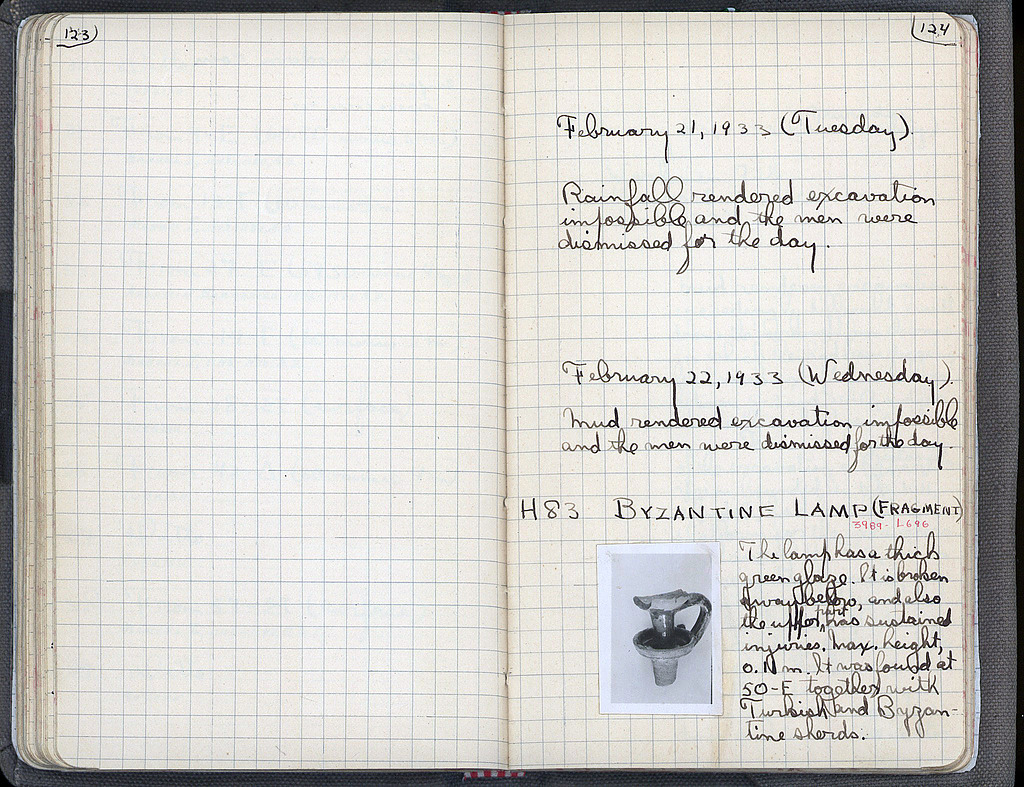 123
124
February 21, 1933 (Tuesday).
Rainfall rendered excavation
impossible and the men were
dismissed for the day.
February 22, 1933 (Wednesday).
Mud rendered excavation impossible
and the men were dismissed for the day.
H83 BYZANTINE LAMP (FRAGMENT)
3989 - L696
The lamp has a thick
green glaze. It is broken
away below, and also
the upper part has sustained
injuries. Max. height,
0.11 m. It was found at
50-E together with
Turkish and Byzan-
tine sherds.